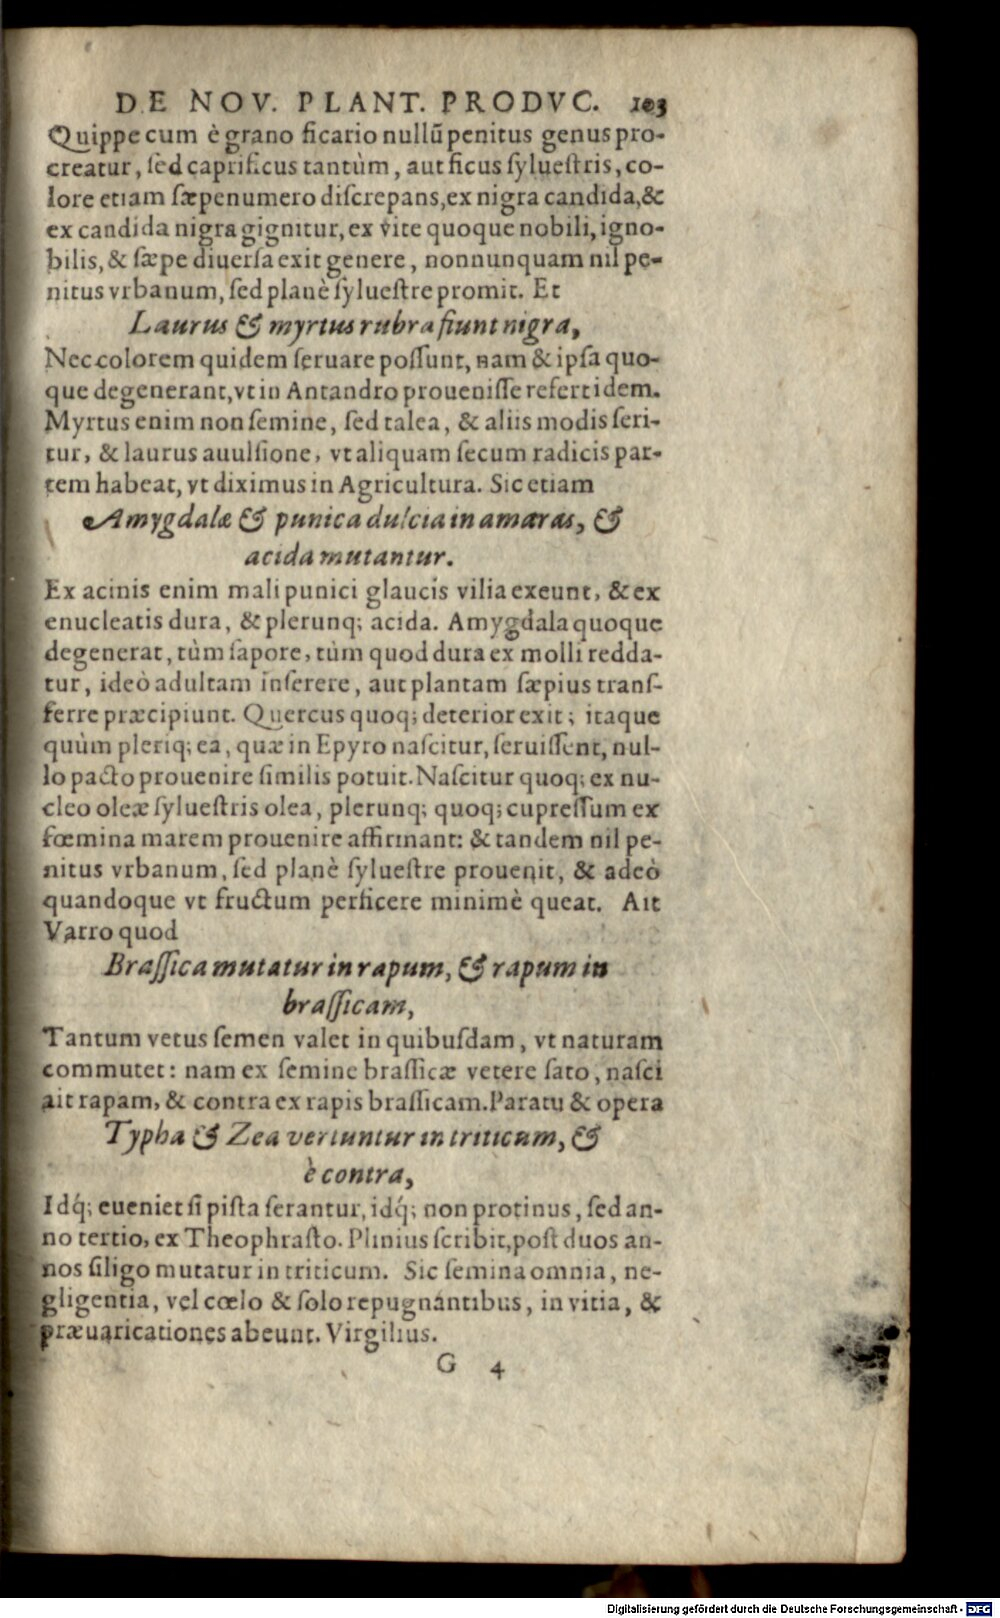 DE NOV. PLANT. PRODVC. 103
Quippe cum è grano ficario nullũ penitus genus pro-
creatur, ſed caprificus tantùm, aut ficus ſylueſtris, co-
lore etiam ſæpenumero diſcrepans, ex nigra candida, &
ex candida nigra gignitur, ex vite quoque nobili, igno-
bilis, & ſæpe diuerſa exit genere, nonnunquam nil pe-
nitus vrbanum, ſed planè ſylueſtre promit. Et
Laurus & myrtus rubra fiunt nigra,
Nec colorem quidem ſeruare poſſunt, nam & ipſa quo-
que degenerant, vt in Antandro proueniſſe refert idem.
Myrtus enim non ſemine, ſed talea, & aliis modis ſeri-
tur, & laurus auulſione, vt aliquam ſecum radicis par-
tem habeat, vt diximus in Agricultura. Sic etiam
Amygdalæ & punica dulcia in amaras, &
acida mutantur.
Ex acinis enim mali punici glaucis vilia exeunt, & ex
enucleatis dura, & plerunq; acida. Amygdala quoque
degenerat, tùm ſapore, tùm quod dura ex molli redda-
tur, ideò adultam inſerere, aut plantam ſæpius tranſ-
ferre præcipiunt. Quercus quoq; deterior exit; itaque
quùm pleriq; ea, quæ in Epyro naſcitur, ſeruiſſent, nul-
lo pacto prouenire ſimilis potuit. Naſcitur quoq; ex nu-
cleo oleæ ſylueſtris olea, plerunq; quoq; cupreſſum ex
fœmina marem prouenire affirmant: & tandem nil pe-
nitus vrbanum, ſed planè ſylueſtre prouenit, & adeò
quandoque vt fructum perficere minimè queat. Ait
Varro quod
Braſſica mutatur in rapum, & rapum in
braſſicam,
Tantum vetus ſemen valet in quibuſdam, vt naturam
commutet: nam ex ſemine braſſicæ vetere ſato, naſci
ait rapam, & contra ex rapis braſſicam. Paratu & opera
Typha & Zea vertuntur in triticum, &
è contra,
Idq́; eueniet ſi piſta ſerantur, idq́; non protinus, ſed an-
no tertio, ex Theophraſto. Plinius ſcribit, poſt duos an-
nos ſiligo mutatur in triticum. Sic ſemina omnia, ne-
gligentia, vel cœlo & ſolo repugnantibus, in vitia, &
præuaricationes abeunt. Virgilius.
G 4
Digitalisierung gefördert durch die Deutsche Forschungsgemeinschaft - DFG